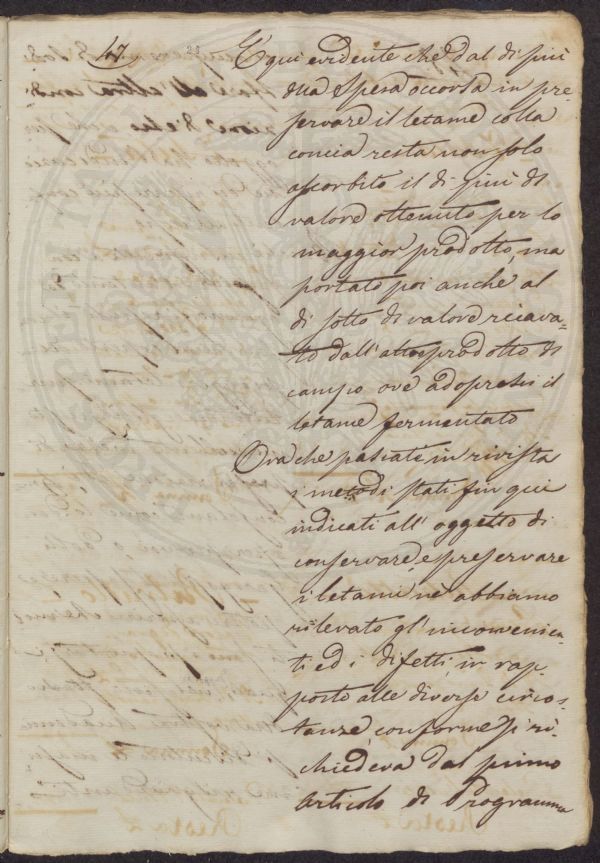 47.
23
E' qui evidente che dal di più
della spesa occorsa in pre-
servare il letame colla
concia resta non solo
assorbito il di più di
valore ottenuto per lo
maggior prodotto, ma
portato poi anche al
di sotto di valore ricava-
to dall'altro prodotto di
campo ove adoprasi il
letame fermentato
Ora che passati in rivista
i metodi stati fin qui
indicati all'oggetto di
conservare, e preservare
i letami ne abbiamo
rilevato gl'inconvenien-
ti ed i difetti, in rap-
porto alle diverse circos-
tanze, conforme si ri-
chiedeva dal primo
Articolo di Programma